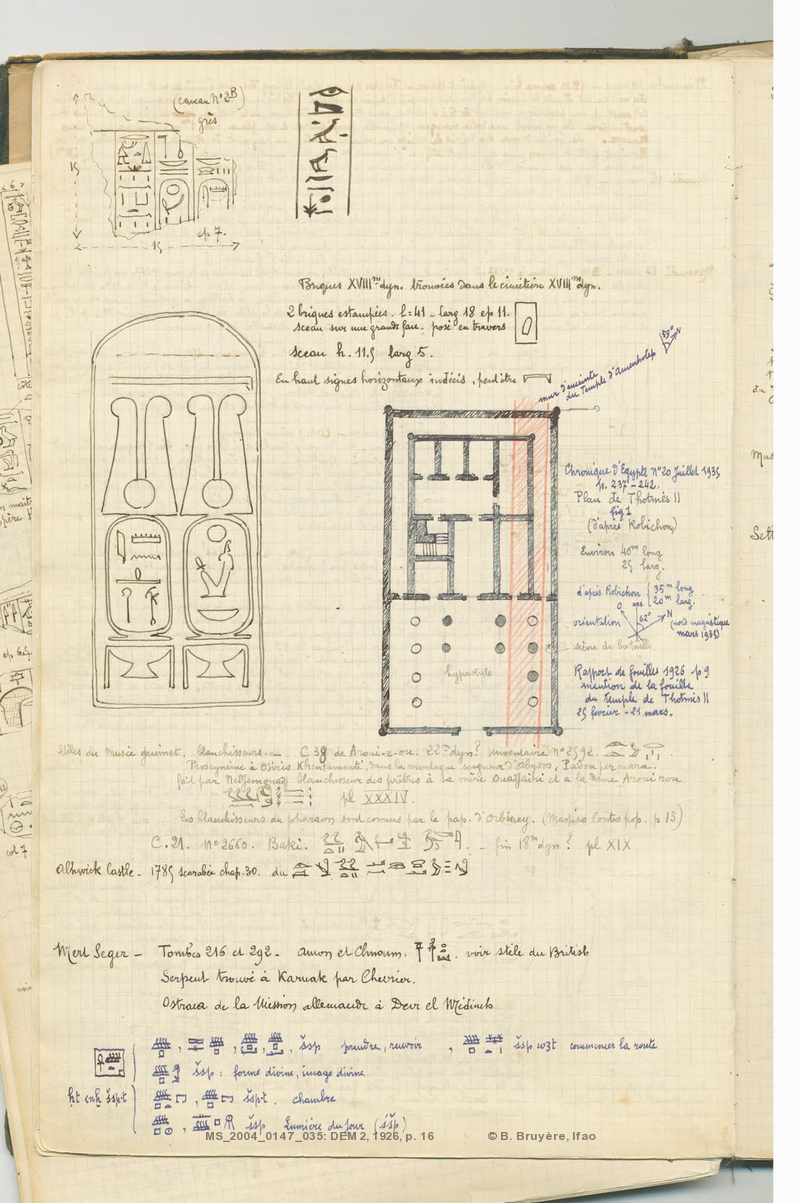 (caveau N°2B)
grès
15
15
ep 7.
Briques XVIIIme dyn. trouvées dans le cimetière XVIIIme dyn.
2 briques estampées. l=41 _ larg 18 ep 11.
sceau sur une grande face. posé en travers
sceau h. 11.5 larg 5.
En haut signes horizontaux indécis, peut être
mur d'enceinte
du Temple d'Amenhotep
Chronique d'Egypte N°20 Juillet 1935
p. 237-242.
Plan de Thotmès II
fig 1
(d'après Robichon)
Environ 40m long
25 larg.
d'après Robichon { 35m long
20m larg.
orientation O 62° N (nord magnétique
mars 1935)
hypostyle
Rapport de fouilles 1926 p 9
mention de la fouille
du temple de Thotmès II
25 fevrier - 21 mars.
stèles du Musée guimet. blanchisseurs. C 38 de 22e dyn? Inventaire N°2592.
Proscynème à Osiris Khentamenti, dans la montagne seigneur d'Abydos,
fait par blanchisseur des prêtres à sa mère et à la dame
pl XXXIV.
les blanchisseurs du pharaon sont connus par le pap. d'Orbiney. (Maspéro Contes pop. p 13)
C.21. N°2660. Baki. _ fin 18me dyn? pl XIX
Alnwick Castle _ 1785 scarabée chap. 30. du
Mert Seger _ Tombes 216 et 292 _ Amon et Chnoum. voir stèle du British
Serpent trouvé à Karnak par Chevrier.
Ostraca de la Mission allemande à Deir el Médineh
šsp prendre, recevoir, šsp w3t commencer la route
šsp : forme divine, image divine
ḥt ꜥnḫ šspt
šspt. chambre
šsp Lumière du jour (sšp)
MS_2004_0147_035: DEM 2, 1926, p. 16 © B. Bruyère, Ifao